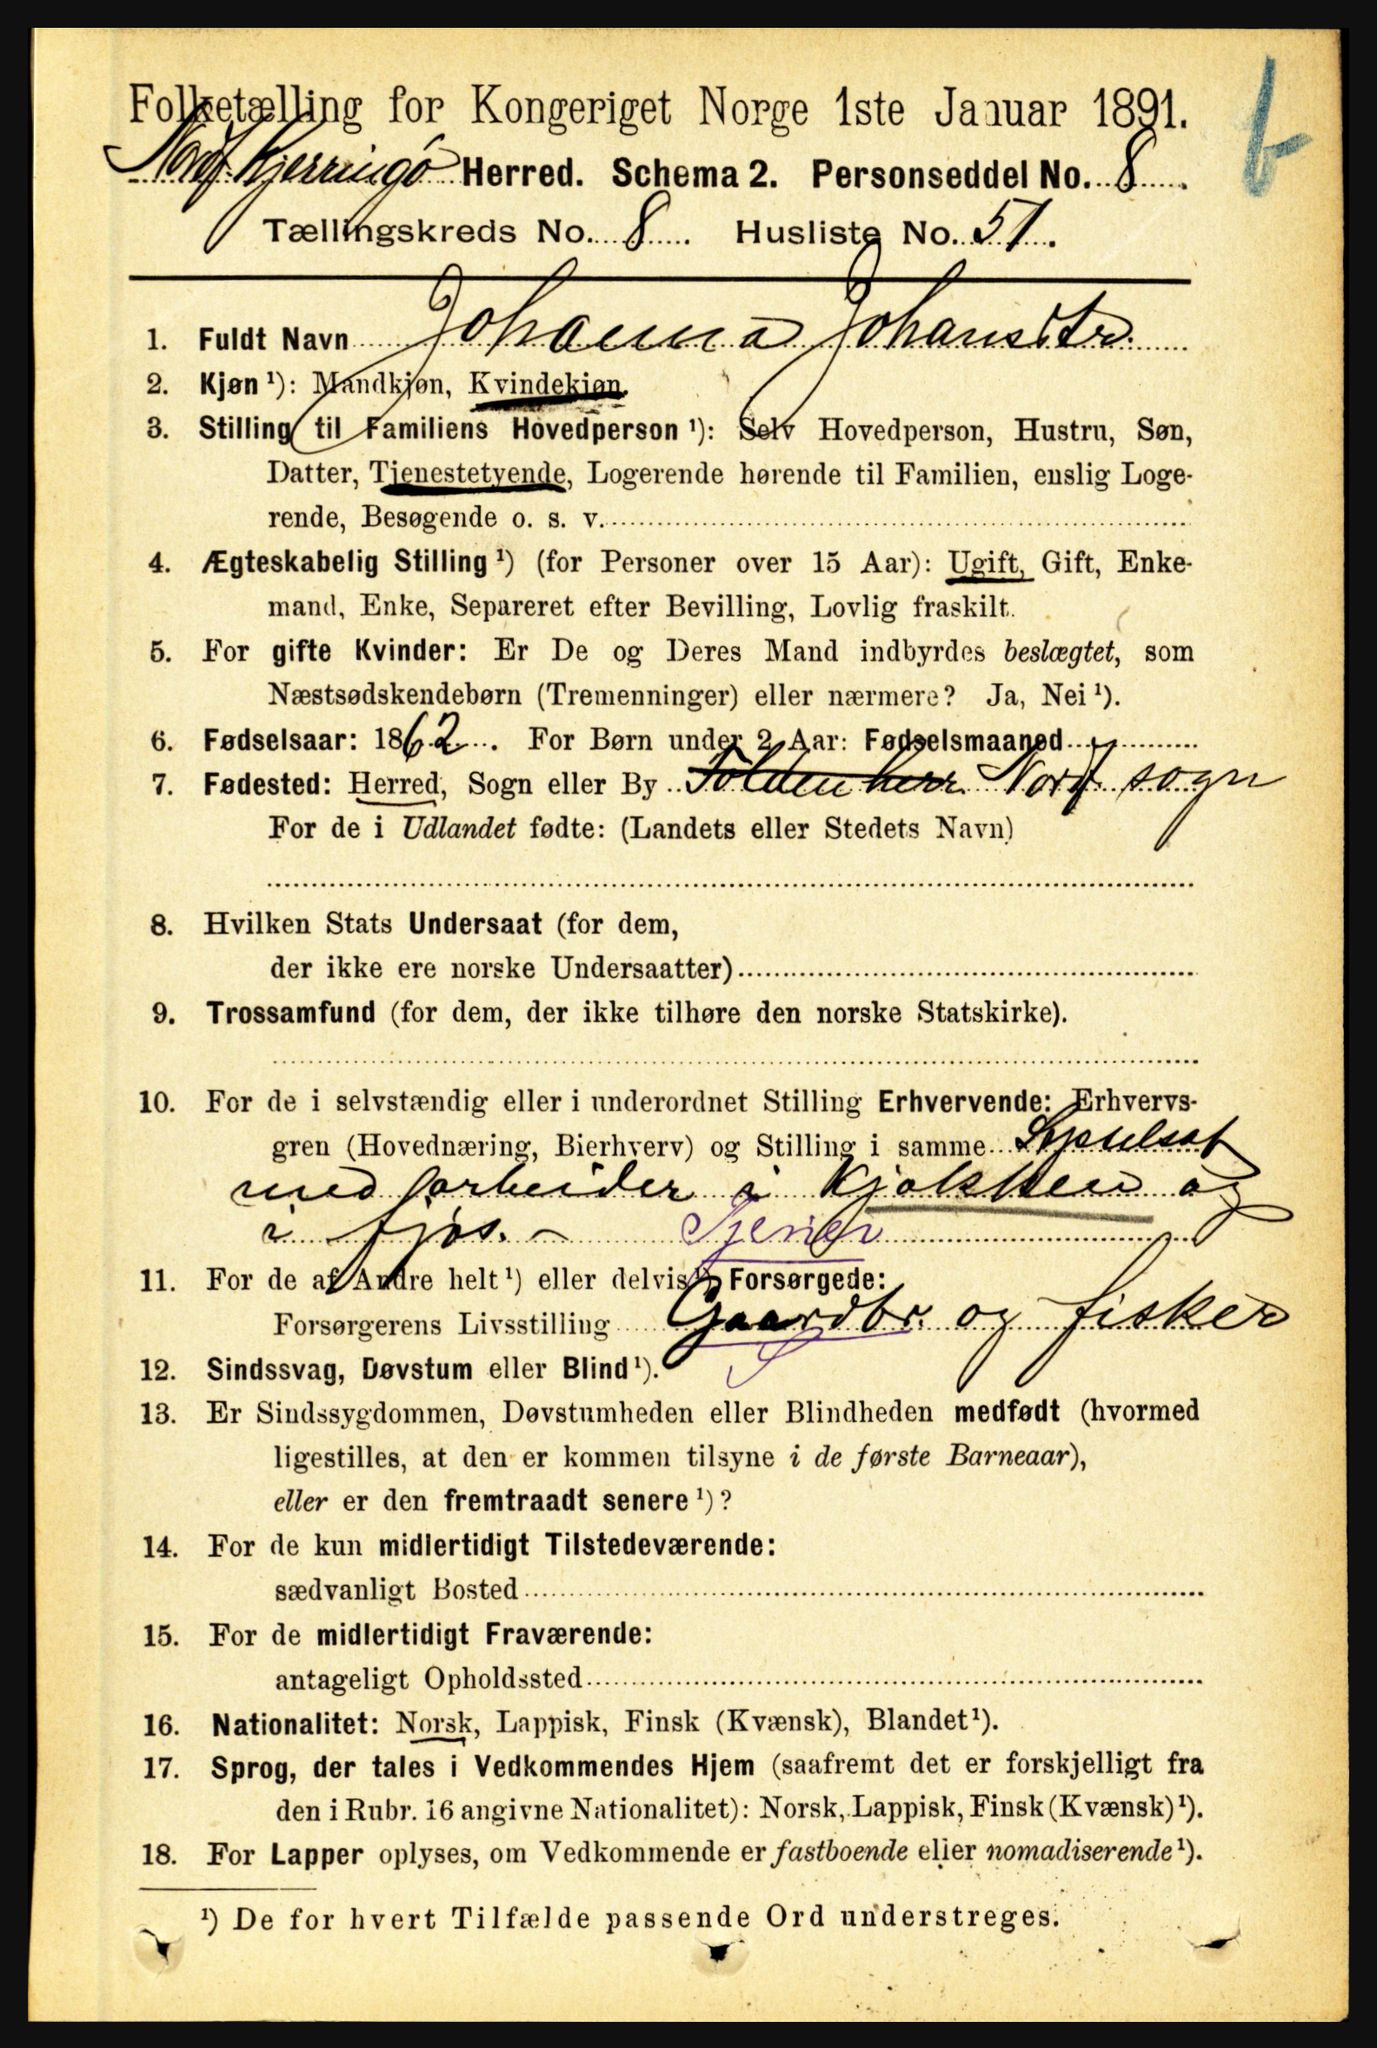 Folketælling for Kongeriget Norge 1ste Januar 1891.
Nordf. Kjerringø Herred. Schema 2. Personseddel No. 8.
Tællingskreds No. 8. Husliste No. 51.
1. Fuldt Navn Johanna Johansdtr.
2. Kjøn ¹): Mandkjøn, Kvindekjøn.
3. Stilling til Familiens Hovedperson ¹): Selv Hovedperson, Hustru, Søn,
Datter, Tjenestetyende, Logerende hørende til Familien, enslig Loge-
rende, Besøgende o. s. v.
4. Ægteskabelig Stilling ¹) (for Personer over 15 Aar): Ugift, Gift, Enke-
mand, Enke, Separeret efter Bevilling, Lovlig fraskilt.
5. For gifte Kvinder: Er De og Deres Mand indbyrdes beslægtet, som
Næstsødskendebørn (Tremenninger) eller nærmere? Ja, Nei ¹).
6. Fødselsaar: 1862. For Børn under 2 Aar: Fødselsmaaned
7. Fødested: Herred, Sogn eller By Folden herr. Nordf. sogn
For de i Udlandet fødte: (Landets eller Stedets Navn)
8. Hvilken Stats Undersaat (for dem,
der ikke ere norske Undersaatter)
9. Trossamfund (for dem, der ikke tilhøre den norske Statskirke).
10. For de i selvstændig eller i underordnet Stilling Erhvervende: Erhvervs-
gren (Hovednæring, Bierhverv) og Stilling i samme Sysselsat
med arbeider i Kjøkken og
i fjøs. - Tjener
11. For de af Andre helt ¹) eller delvis ¹) Forsørgede:
Forsørgerens Livsstilling Gaardbr. og fisker
12. Sindssvag, Døvstum eller Blind ¹).
13. Er Sindssygdommen, Døvstumheden eller Blindheden medfødt (hvormed
ligestilles, at den er kommen tilsyne i de første Barneaar),
eller er den fremtraadt senere ¹)?
14. For de kun midlertidigt Tilstedeværende:
sædvanligt Bosted
15. For de midlertidigt Fraværende:
antageligt Opholdssted
16. Nationalitet: Norsk, Lappisk, Finsk (Kvænsk), Blandet ¹).
17. Sprog, der tales i Vedkommendes Hjem (saafremt det er forskjelligt fra
den i Rubr. 16 angivne Nationalitet): Norsk, Lappisk, Finsk (Kvænsk) ¹).
18. For Lapper oplyses, om Vedkommende er fastboende eller nomadiserende ¹).
¹) De for hvert Tilfælde passende Ord understreges.